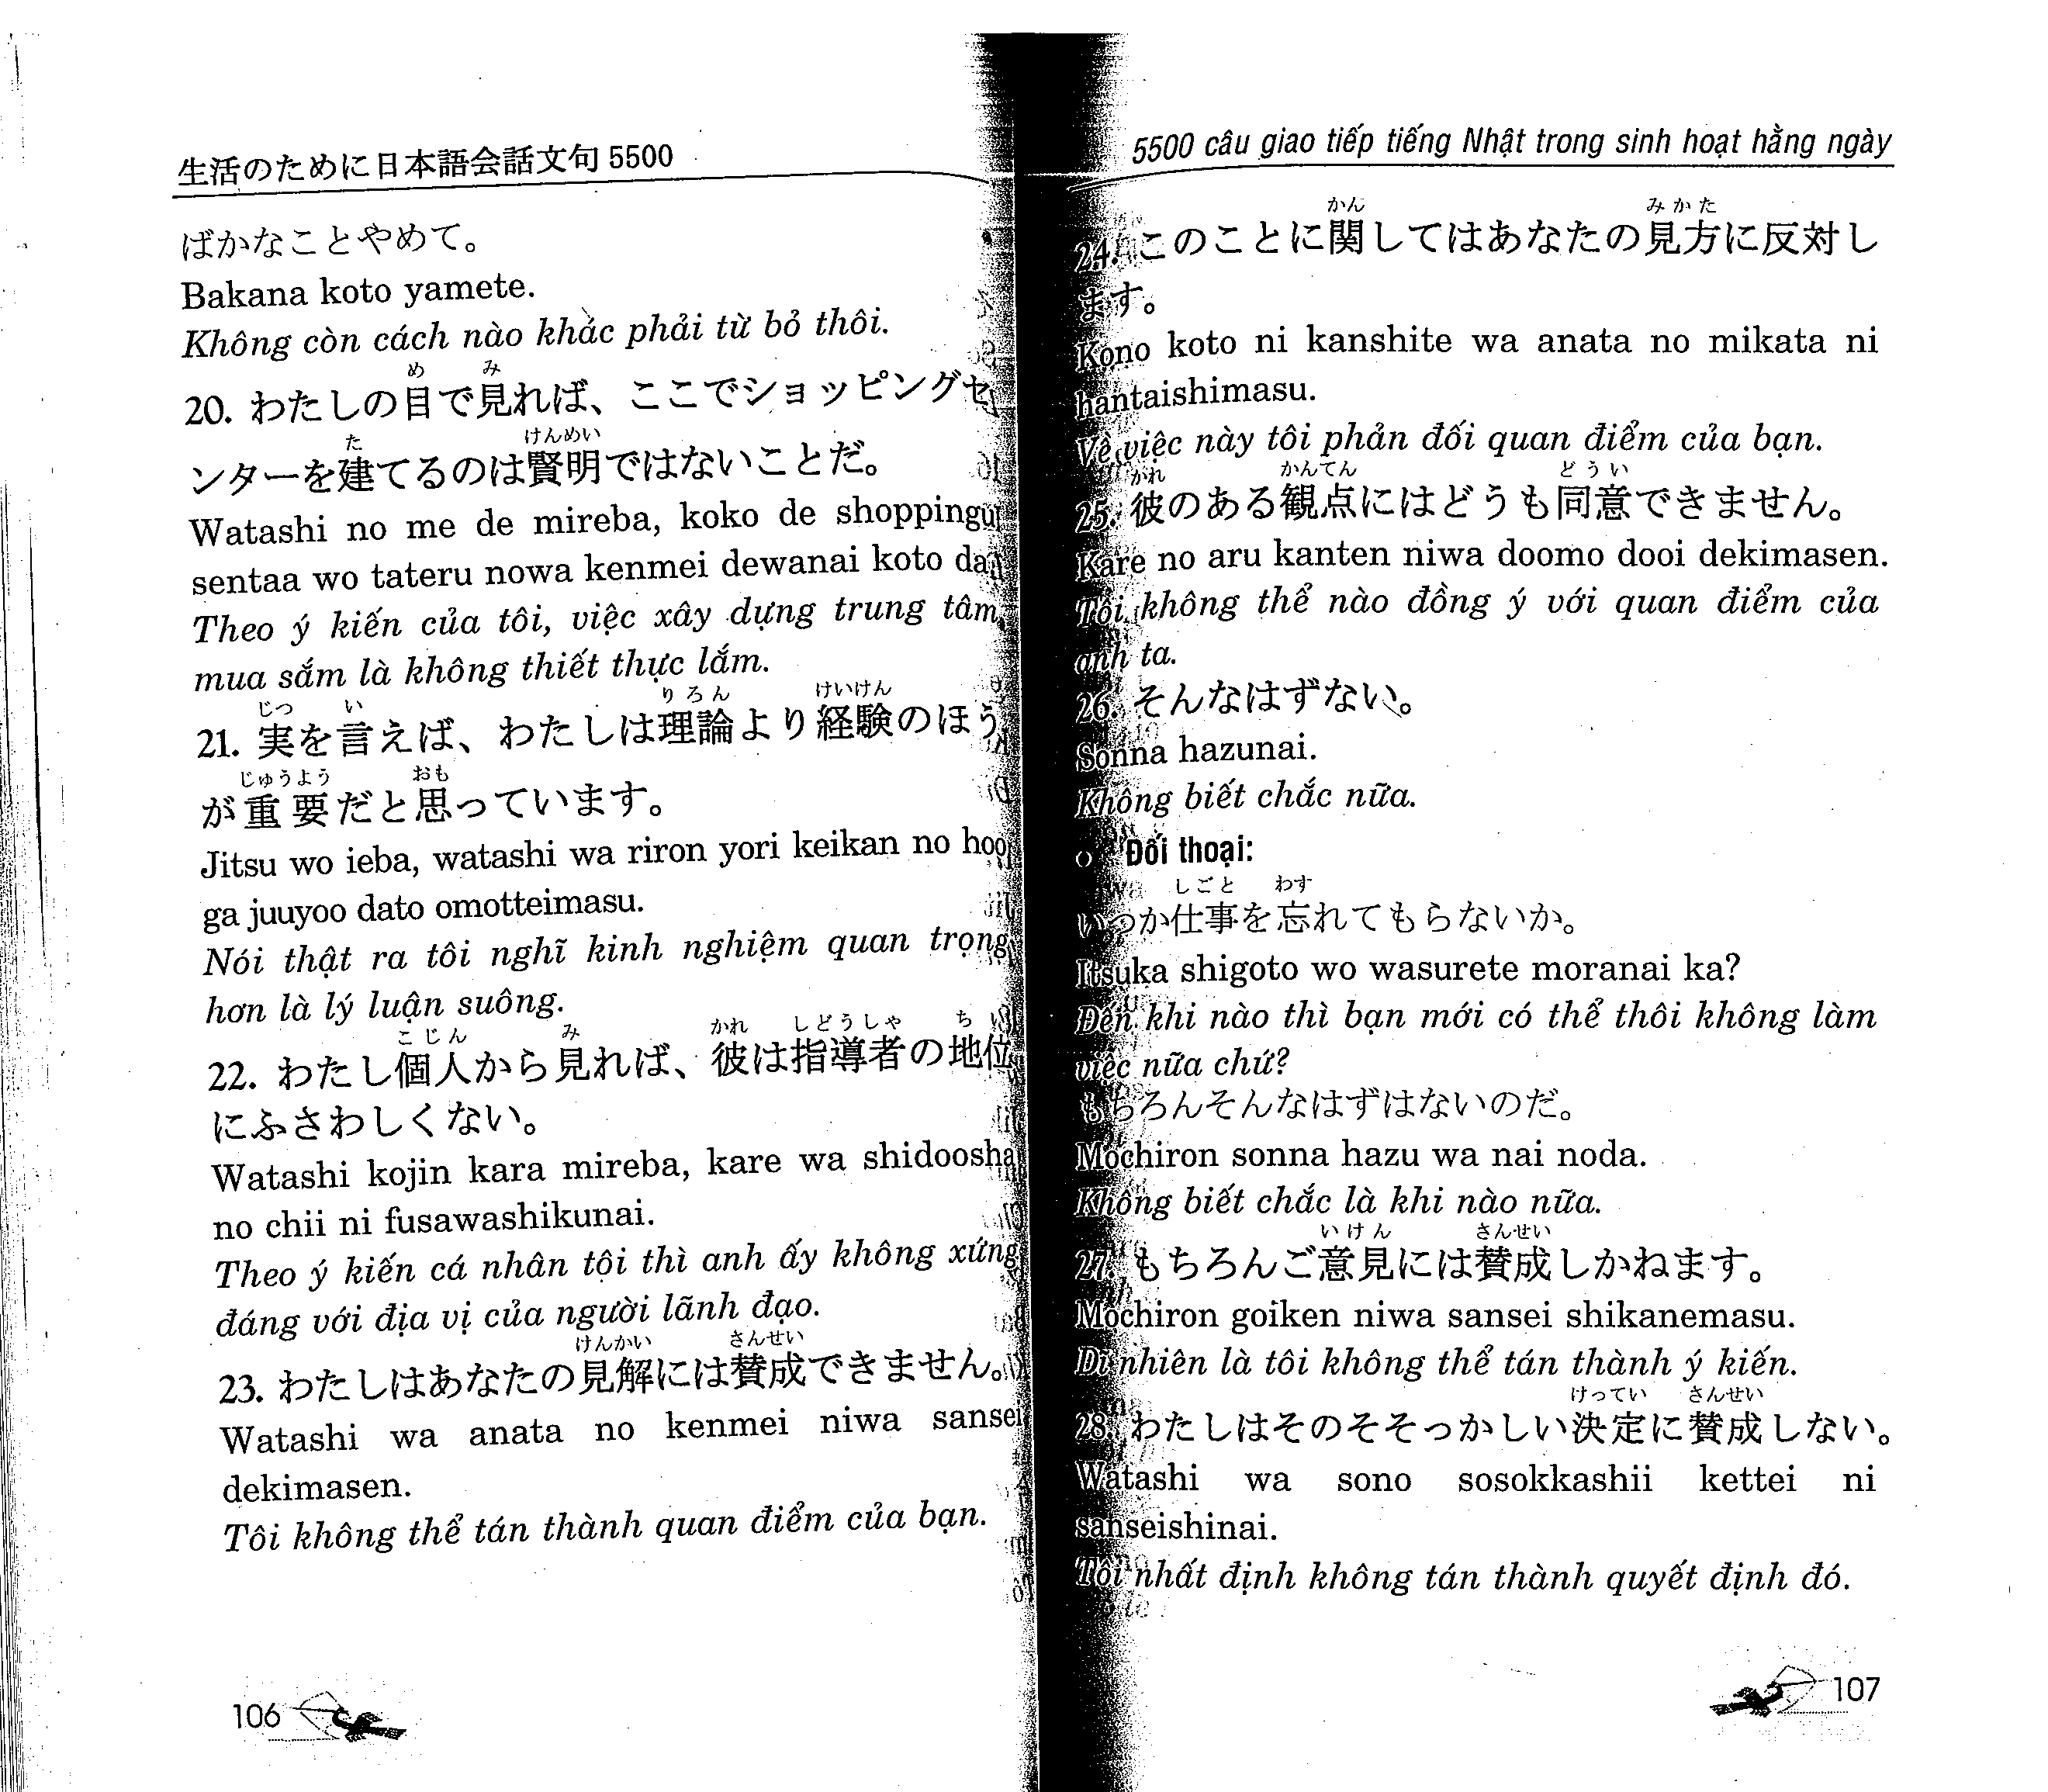 生活のために日本語会話文句 5500
ばかなことやめて。
Bakana koto yamete.
Không còn cách nào khác phải từ bỏ thôi.
め み
20. わたしの目で見れば、ここでショッピングセ
た けんめい
ンターを建てるのは賢明ではないことだ。
Watashi no me de mireba, koko de shoppingu
sentaa wo tateru nowa kenmei dewanai koto da.
Theo ý kiến của tôi, việc xây dựng trung tâm
mua sắm là không thiết thực lắm.
じつ い りろん けいけん
21. 実を言えば、わたしは理論より経験のほう
じゅうよう おも
が重要だと思っています。
Jitsu wo ieba, watashi wa riron yori keikan no hoo
ga juuyoo dato omotteimasu.
Nói thật ra tôi nghĩ kinh nghiệm quan trọng
hơn là lý luận suông.
こじん み かれ しどうしゃ ち い
22. わたし個人から見れば、彼は指導者の地位
にふさわしくない。
Watashi kojin kara mireba, kare wa shidoosha
no chii ni fusawashikunai.
Theo ý kiến cá nhân tôi thì anh ấy không xứng
đáng với địa vị của người lãnh đạo.
けんかい さんせい
23. わたしはあなたの見解には賛成できません。
Watashi wa anata no kenmei niwa sansei
dekimasen.
Tôi không thể tán thành quan điểm của bạn.
106
5500 câu giao tiếp tiếng Nhật trong sinh hoạt hằng ngày
かん みかた
24. このことに関してはあなたの見方に反対し
ます。
Kono koto ni kanshite wa anata no mikata ni
hantaishimasu.
Về việc này tôi phản đối quan điểm của bạn.
がれ かんてん どうい
25. 彼のある観点にはどうも同意できません。
Kare no aru kanten niwa doomo dooi dekimasen.
Tôi không thể nào đồng ý với quan điểm của
anh ta.
26. そんなはずない。
Sonna hazunai.
Không biết chắc nữa.
Đối thoại:
しごと わす
いつか仕事を忘れてもらないか。
Itsuka shigoto wo wasurete moranai ka?
Đến khi nào thì bạn mới có thể thôi không làm
việc nữa chứ?
もちろんそんなはずはないのだ。
Mochiron sonna hazu wa nai noda.
Không biết chắc là khi nào nữa.
いけん さんせい
27. もちろんご意見には賛成しかねます。
Mochiron goiken niwa sansei shikanemasu.
Dĩ nhiên là tôi không thể tán thành ý kiến.
けってい さんせい
28. わたしはそのそそっかしい決定に賛成しない。
Watashi wa sono sosokkashii kettei ni
sanseishinai.
Tôi nhất định không tán thành quyết định đó.
107